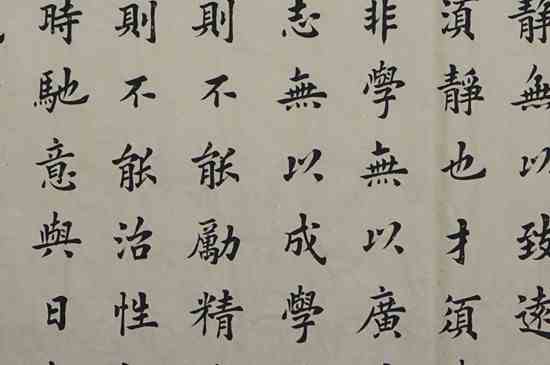 靜無以致遠
湏靜也才須
非學無以廣
志無以成學
則不能勵精
則不能治性
時馳意與日